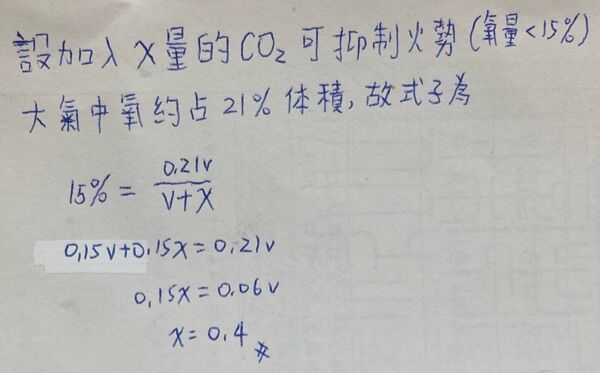 設加入X量的CO₂可抑制火勢(氧量<15%)
大氣中氧約占21%体積,故式子為
15% = 0.21v / V+X
0.15v+0.15x=0.21v
0.15x=0.06v
x=0.4 #